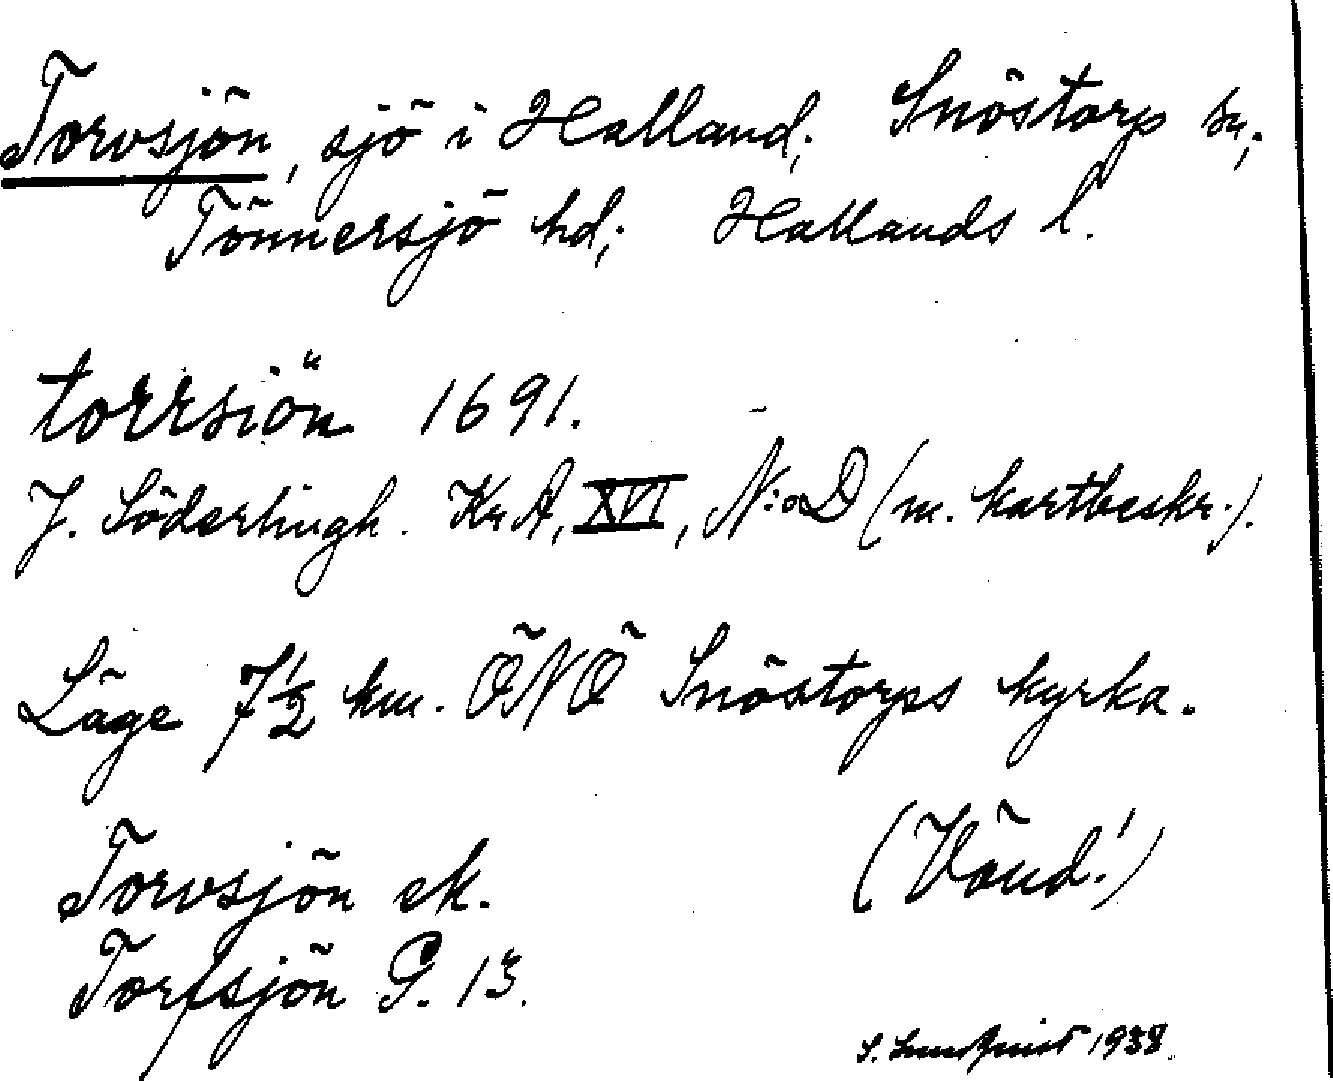 Torvsjön, sjö i Halland; Snöstorp sn;
Tönnersjö hd; Hallands l.
torrsiön 1691.
J. Söderlingh. Kr A, XVI, N:o D (m. kartbeskr.).
Läge 7 1/2 km. ÖNÖ Snöstorps kyrka.
Torvsjön ek.
(Vänd!)
Torfsjön G. 13.
S. Lundquist 1938.